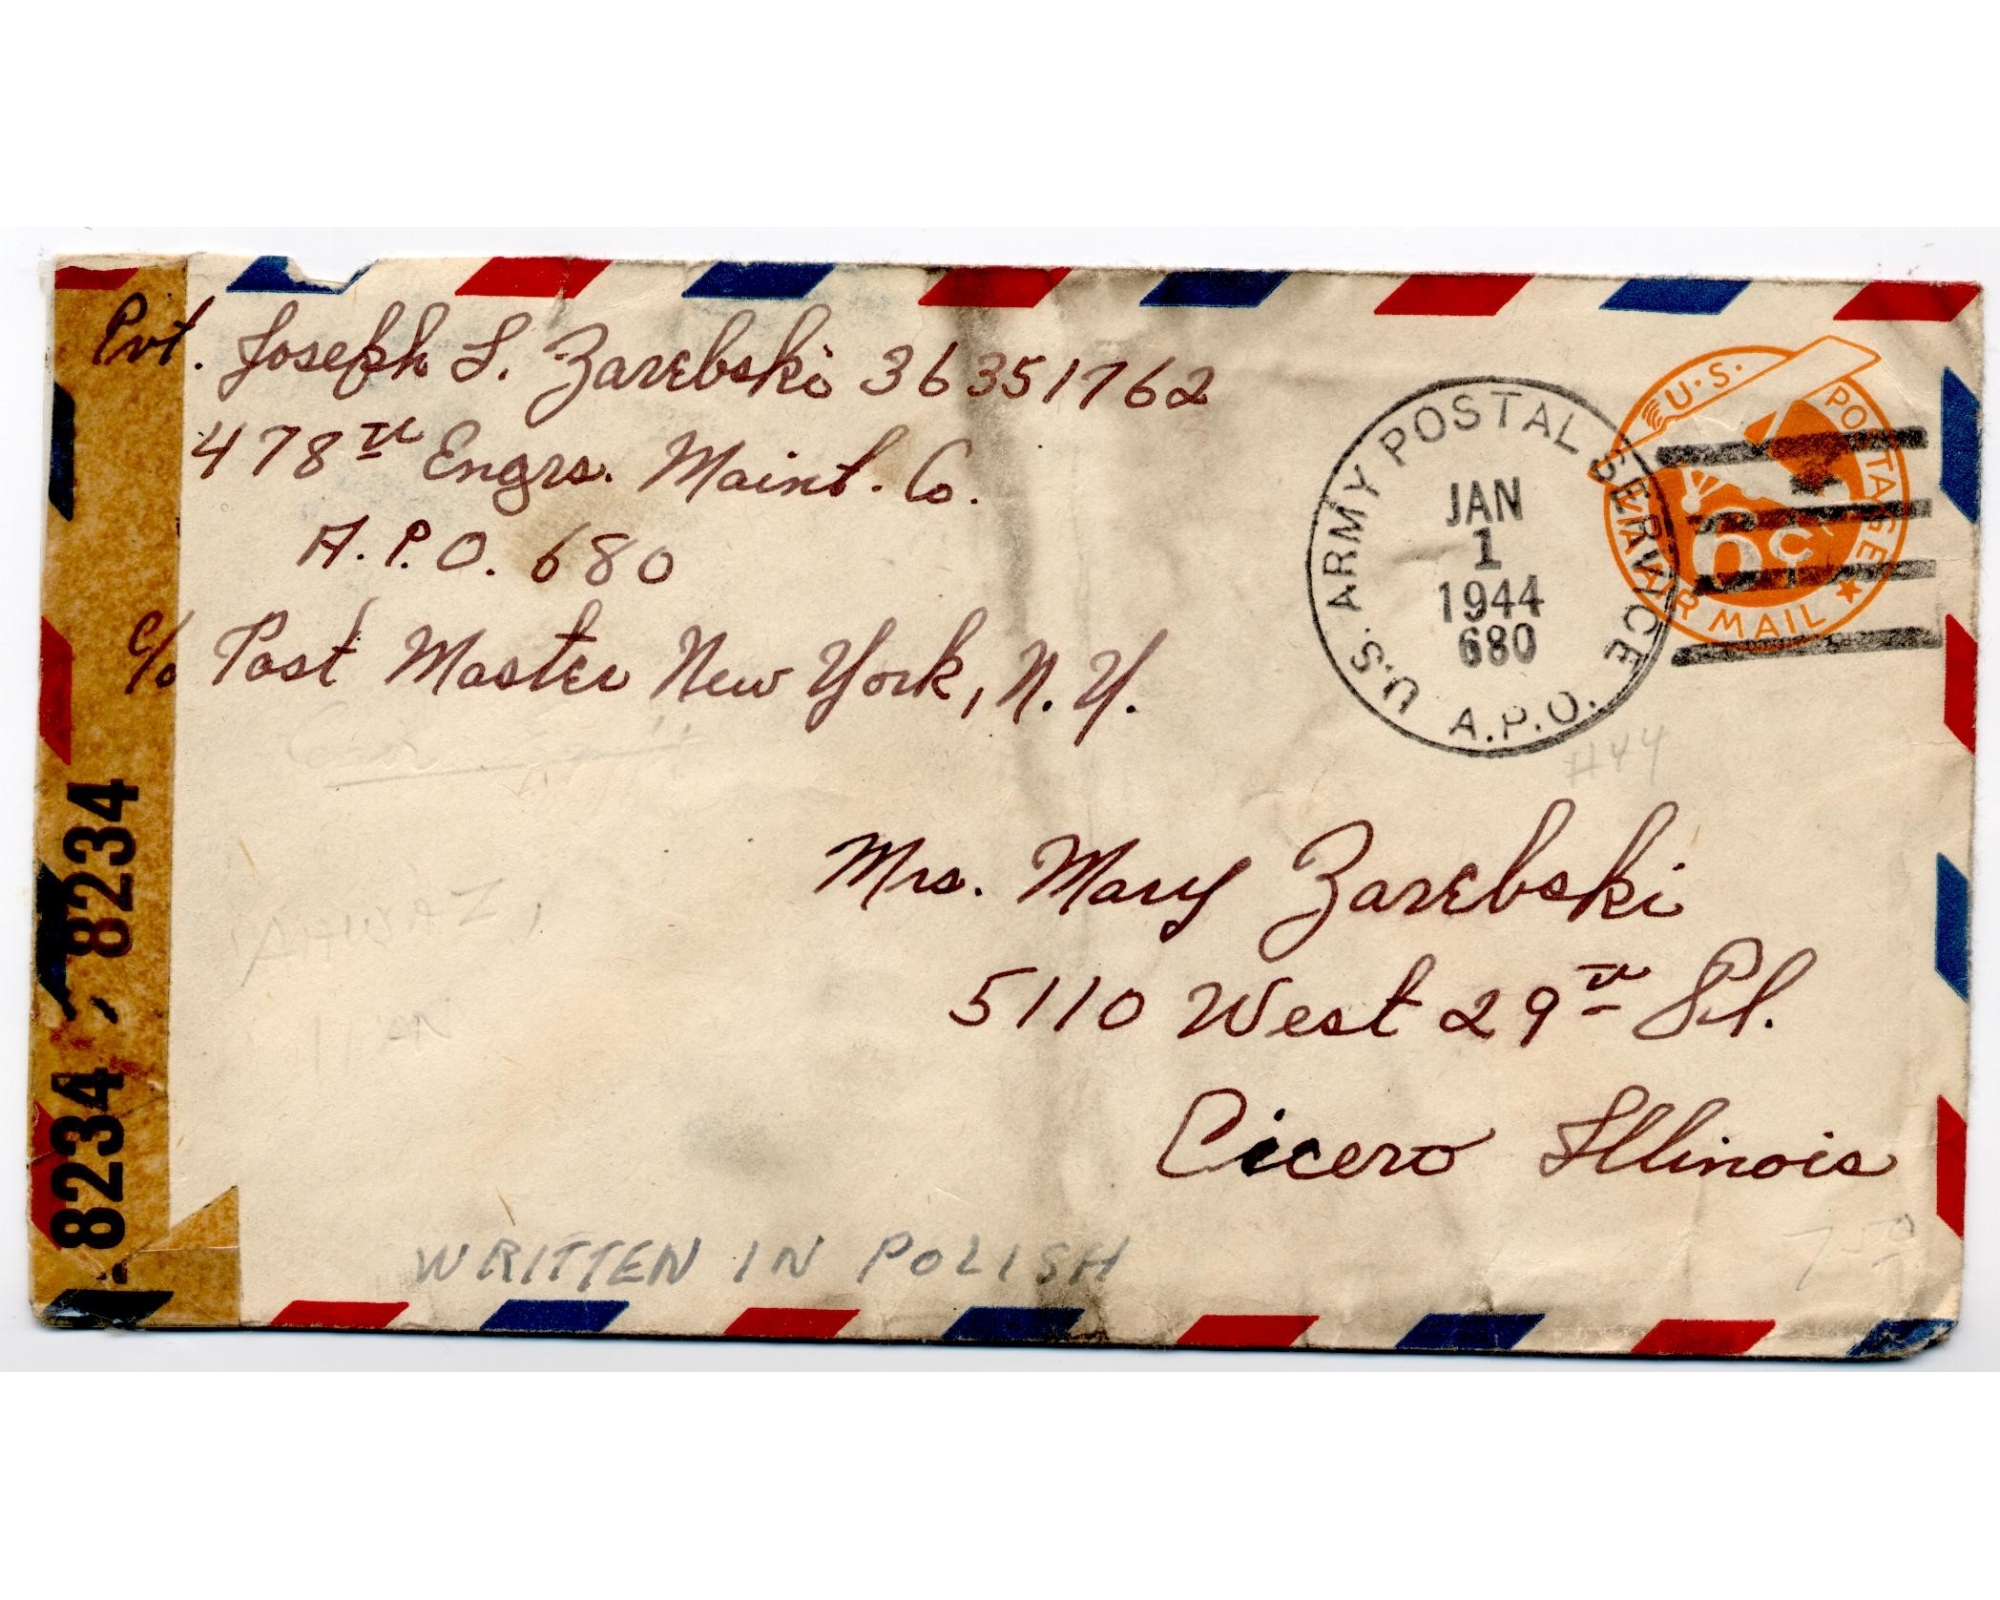 Pvt. Joseph L. Zarebski 36351762
478th Engrs. Maint. Co.
A.P.O. 680
c/o Post Master New York, N.Y.
U.S. ARMY POSTAL SERVICE
JAN
1
1944
680
A.P.O.
U.S. POSTAGE
6c
VIA AIR MAIL
#44
Mrs. Mary Zarebski
5110 West 29th Pl.
Cicero Illinois
AHWAZ,
IRAN
WRITTEN IN POLISH
750
8234
8234